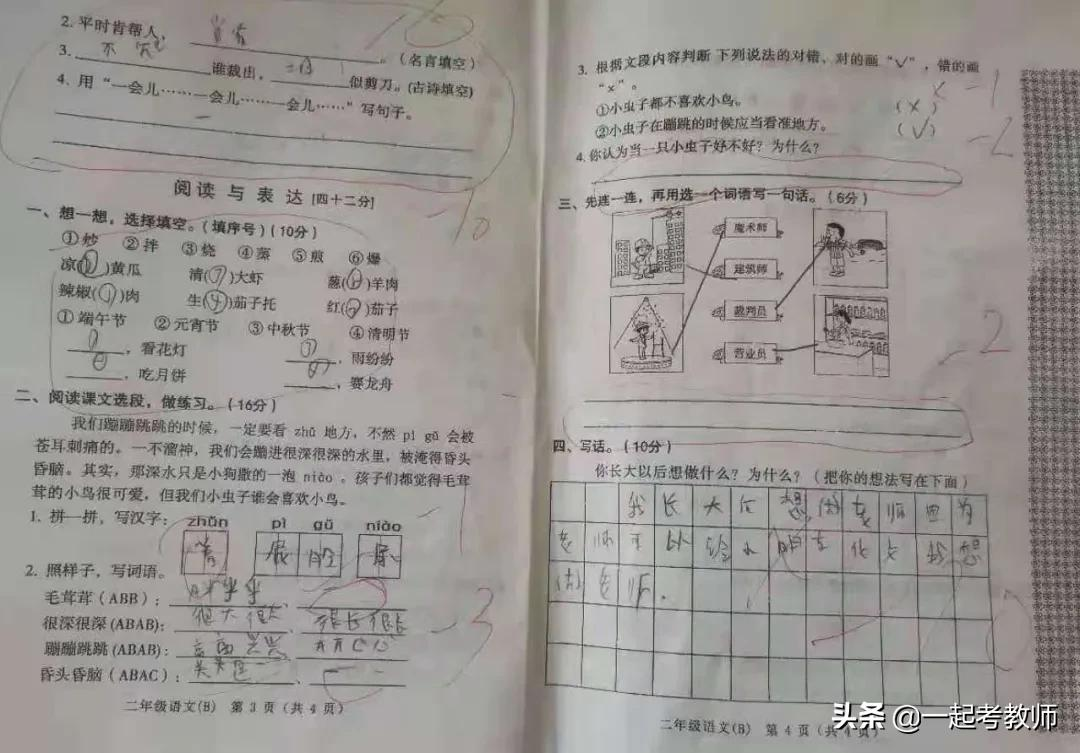 2. 平时肯帮人，
（名言填空）
3. 不知 谁裁出， 二月 似剪刀。(古诗填空)
4. 用“一会儿……一会儿……一会儿……”写句子。
阅读与表达 [四十二分]
一、想一想，选择填空。(填序号)(10分)
①炒 ②拌 ③烧 ④蒸 ⑤煎 ⑥爆
凉( )黄瓜 清( )大虾 葱( )羊肉
辣椒( )肉 生( )茄子托 红( )茄子
①端午节 ②元宵节 ③中秋节 ④清明节
，看花灯 ，雨纷纷
，吃月饼 ，赛龙舟
二、阅读课文选段，做练习。(16分)
我们蹦蹦跳跳的时候，一定要看 zhǔ 地方，不然 pì gǔ 会被
苍耳刺痛的。一不溜神，我们会蹦进很深很深的水里，被淹得昏头
昏脑。其实，那深水只是小狗撒的一泡 niào 。孩子们都觉得毛茸
茸的小鸟很可爱，但我们小虫子谁会喜欢小鸟。
1. 拼一拼，写汉字：
zhǔn pì gǔ niào
2. 照样子，写词语。
毛茸茸 (ABB)： 胖乎乎
很深很深(ABAB)： 很大很大 、 很长很长
蹦蹦跳跳(ABAB)： 高高兴兴 、 开开心心
昏头昏脑 (ABAC)：
二年级语文(B) 第 3 页（共 4 页）
3. 根据文段内容判断 下列说法的对错、对的画“√”，错的画
“×”。
①小虫子都不喜欢小鸟。 (×) × -1
②小虫子在蹦跳的时候应当看准地方。 (√)
-2
4. 你认为当一只小虫子好不好？为什么？
三、先连一连，再用选一个词语写一句话。(6分)
魔术师
建筑师
裁判员
营业员
-2
四、写话。(10分)
你长大以后想做什么？为什么？（把你的想法写在下面）
我长大后想做老师因为
老师可以给 我想
做老师.
二年级语文(B) 第 4 页（共 4 页）
头条 @一起考教师